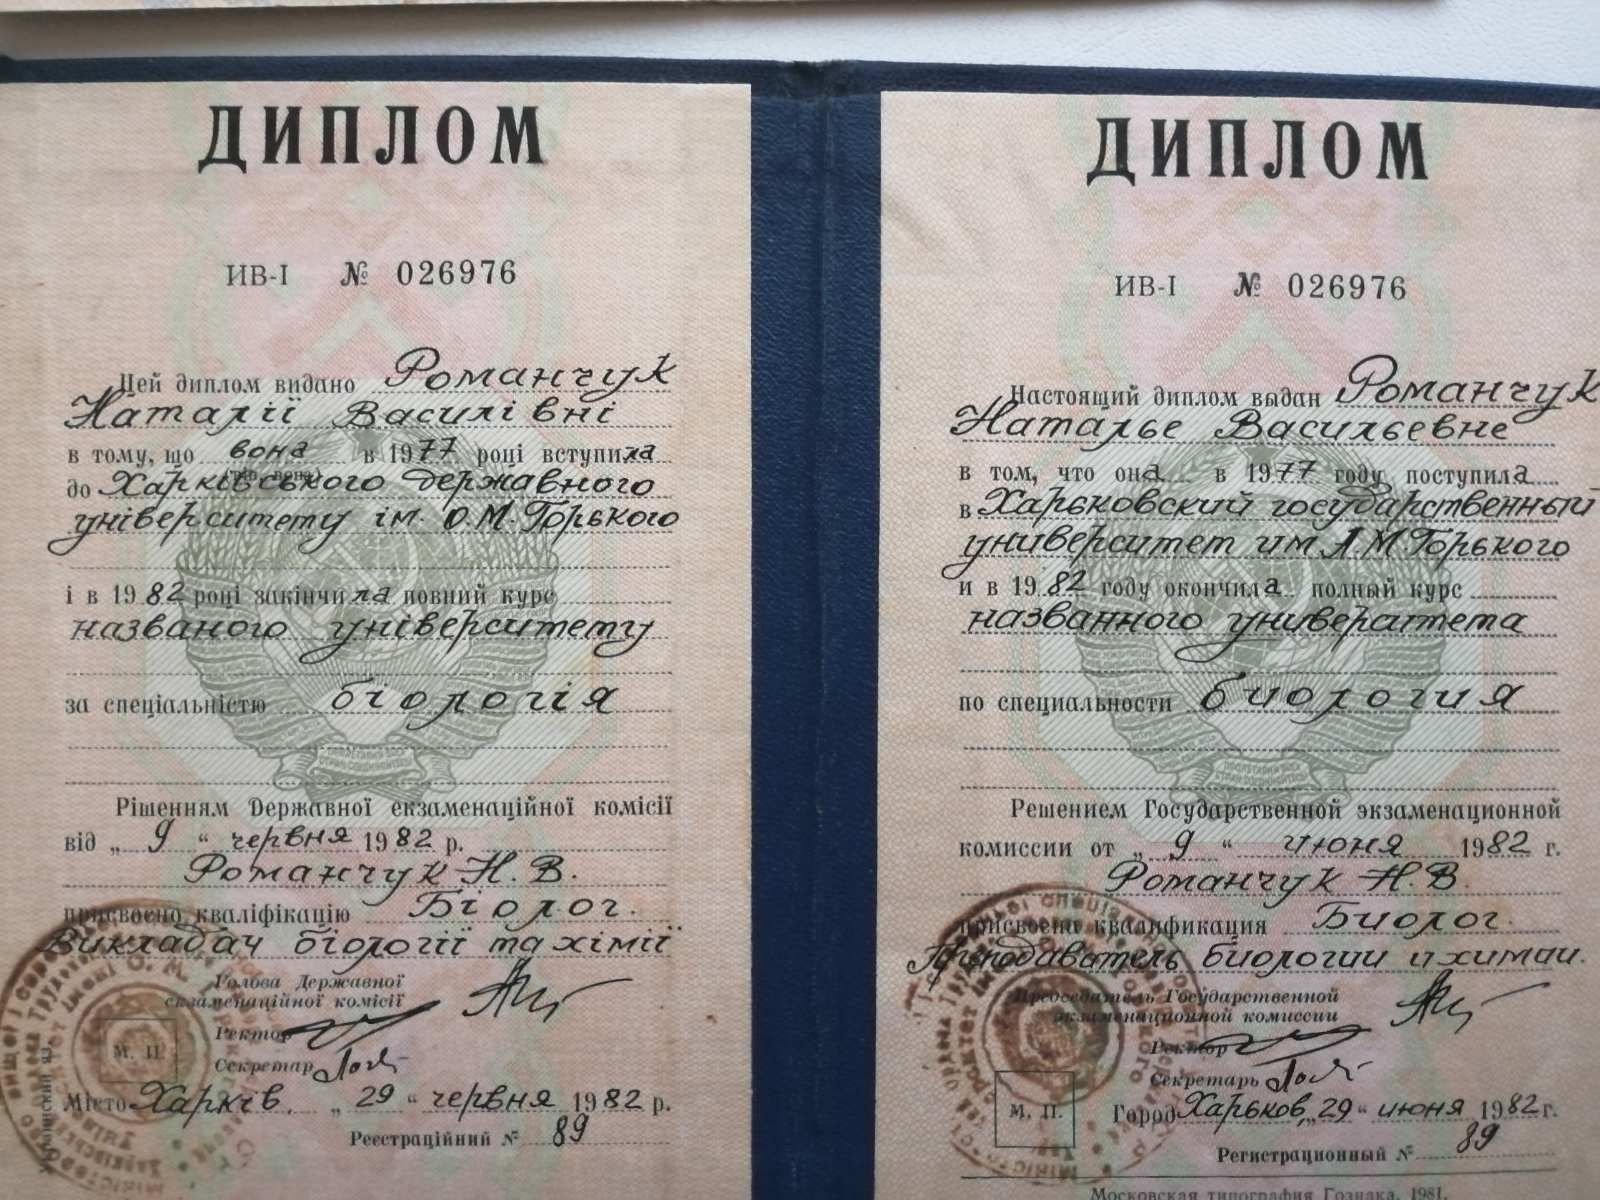 ДИПЛОМ
ИВ-I № 026976
Цей диплом видано Романчук
Наталії Василівні
в тому, що вона в 1977 році вступила
до Харківського державного
університету ім. О.М. Горького
і в 1982 році закінчила повний курс
названого університету
за спеціальністю біологія
Рішенням Державної екзаменаційної комісії
від „9“ червня 1982 р.
Романчук Н. В.
присвоєно кваліфікацію Біолог.
Викладач біології та хімії
Голова Державної
екзаменаційної комісії
Ректор
Секретар
М. П.
Місто Харків. „29“ червня 1982 р.
Реєстраційний № 89
ДИПЛОМ
ИВ-I № 026976
Настоящий диплом выдан Романчук
Наталье Васильевне
в том, что она в 1977 году поступила
в Харьковский государственный
университет им А.М. Горького
и в 1982 году окончила полный курс
названного университета
по специальности биология
ПРОЛЕТАРИИ ВСЕХ
СТРАН, СОЕДИНЯЙТЕСЬ
Решением Государственной экзаменационной
комиссии от „9“ июня 1982 г.
Романчук Н. В.
присвоена квалификация Биолог.
Преподаватель биологии и химии.
Председатель Государственной
экзаменационной комиссии
Ректор
Секретарь
М. П.
Город Харьков, „29“ июня 1982 г.
Регистрационный № 89
Московская типография Гознака. 1981.